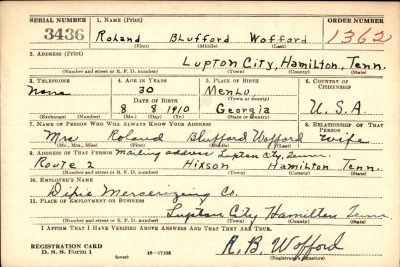 SERIAL NUMBER 1. NAME (Print) ORDER NUMBER
3436 Roland Blufford Wofford 1362
(First) (Middle) (Last)
2. ADDRESS (Print)
Lupton City, Hamilton, Tenn.
(Number and street or R. F. D. number) (Town) (County) (State)
3. TELEPHONE 4. AGE IN YEARS 5. PLACE OF BIRTH 6. COUNTRY OF CITIZENSHIP
None 30 Menlo,
DATE OF BIRTH (Town or county)
8 8 1910 Georgia U.S.A.
(Exchange) (Number) (Mo.) (Day) (Yr.) (State or country)
7. NAME OF PERSON WHO WILL ALWAYS KNOW YOUR ADDRESS 8. RELATIONSHIP OF THAT PERSON
Mrs Roland Blufford Wofford wife
(Mr., Mrs., Miss) (First) (Middle) (Last)
9. ADDRESS OF THAT PERSON Mailing address Lupton City, Tenn.
Route 2 Hixson Hamilton Tenn.
(Number and street or R. F. D. number) (Town) (County) (State)
10. EMPLOYER'S NAME
Dixie Mercerizing Co.
11. PLACE OF EMPLOYMENT OR BUSINESS
Lupton City Hamilton Tenn
(Number and street or R. F. D. number) (Town) (County) (State)
I AFFIRM THAT I HAVE VERIFIED ABOVE ANSWERS AND THAT THEY ARE TRUE.
REGISTRATION CARD
D. S. S. Form 1 (over) 16—17105 R. B. Wofford
(Registrant's signature)